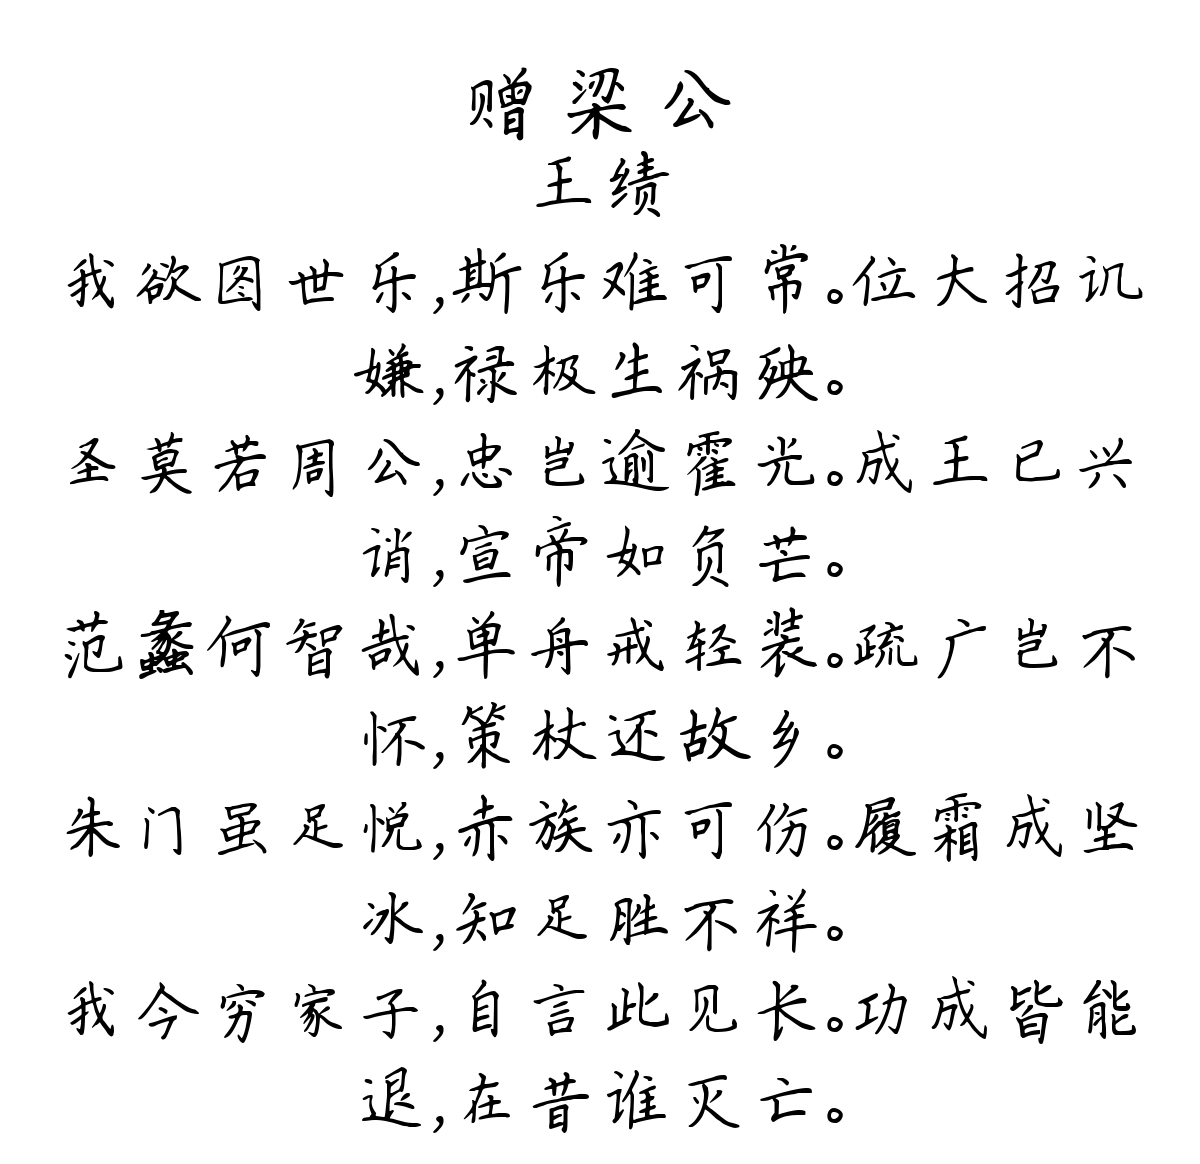 赠梁公
王绩
我欲图世乐,斯乐难可常。位大招讥
嫌,禄极生祸殃。
圣莫若周公,忠岂逾霍光。成王已兴
诮,宣帝如负芒。
范蠡何智哉,单舟戒轻装。疏广岂不
怀,策杖还故乡。
朱门虽足悦,赤族亦可伤。履霜成坚
冰,知足胜不祥。
我今穷家子,自言此见长。功成皆能
退,在昔谁灭亡。